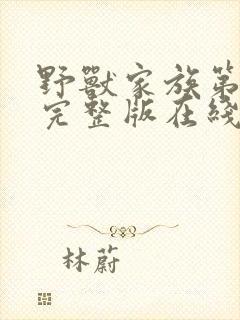 野獸家族第
完整版在綫
林蔚